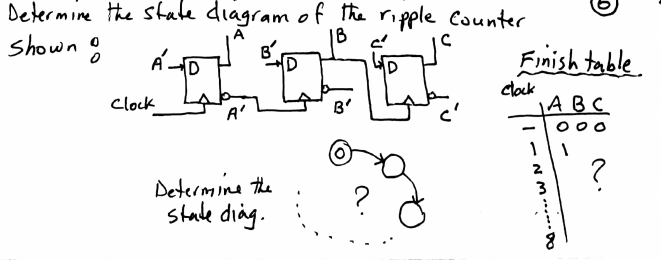 Determine the state diagram of the ripple counter
Shown :
6
A B C
A' D B' D C' D
Clock
A' B' C'
Finish table
Clock
A B C
— 0 0 0
1 1
2
3
?
8
Determine the
state diag.
0
?